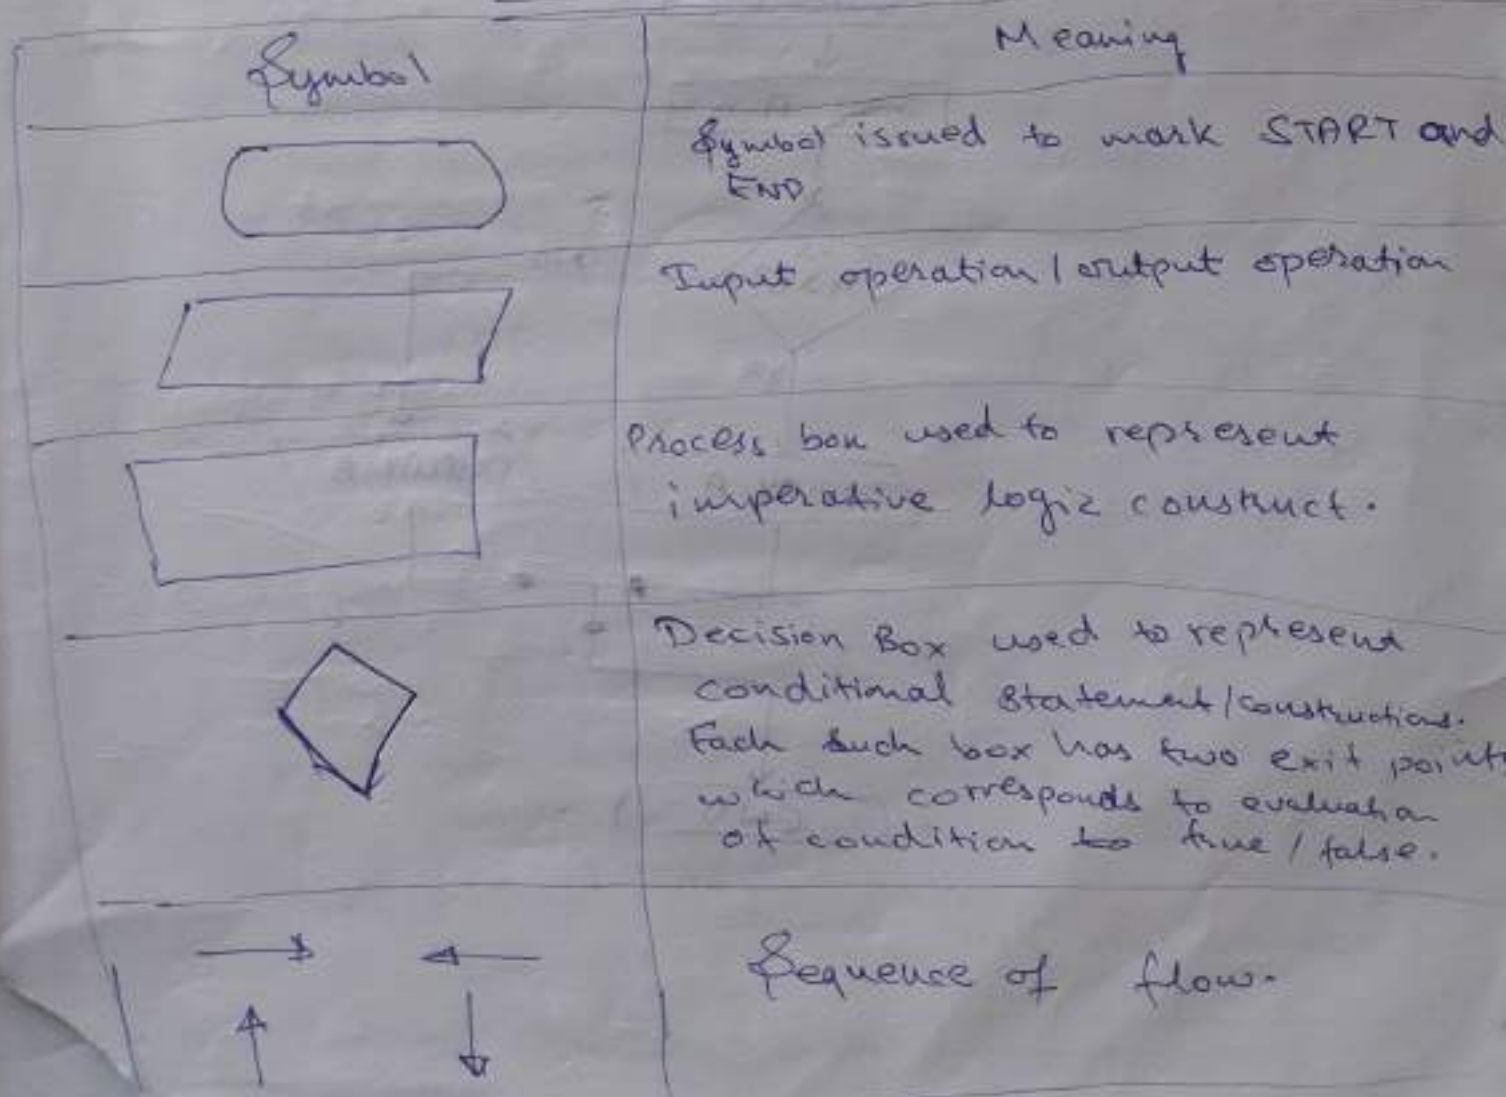 Symbol
Meaning
Symbol issued to mark START and
END
Input operation / output operation
Process box used to represent
imperative logic construct.
Decision Box used to represent
conditional statement/constructions.
Each such box has two exit points
which corresponds to evaluation
of condition to true / false.
Sequence of flow.